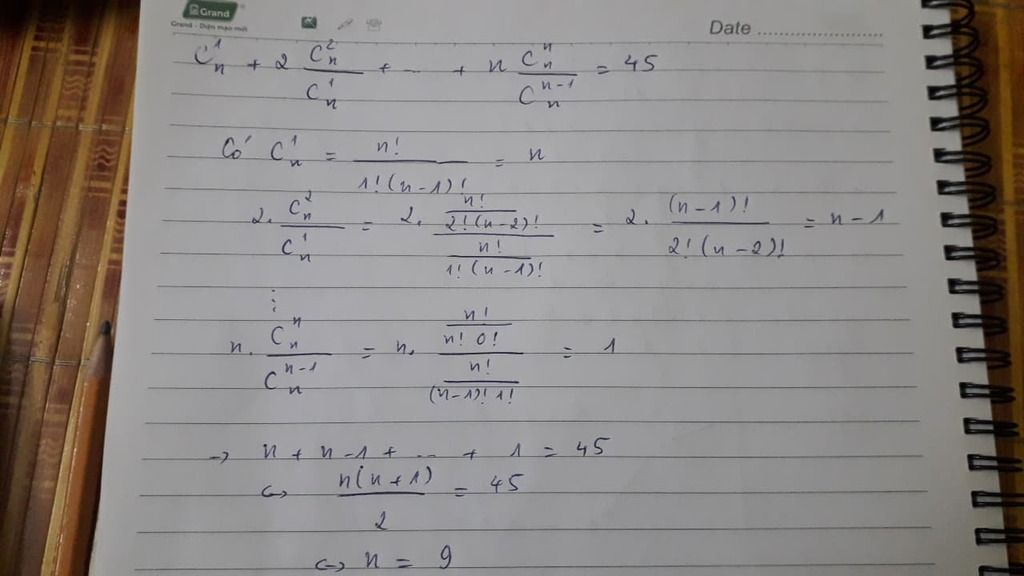 Grand
Grand - Diện mạo mới
Date
C_n^1 + 2 C_n^2 / C_n^1 + ... + n C_n^n / C_n^{n-1} = 45
Có C_n^1 = n! / 1!(n-1)! = n
2. C_n^2 / C_n^1 = 2. (n! / 2!(n-2)!) / (n! / 1!(n-1)!) = 2. (n-1)! / 2!(n-2)! = n-1
⋮
n. C_n^n / C_n^{n-1} = n. (n! / n! 0!) / (n! / (n-1)! 1!) = 1
→ n + n-1 + ... + 1 = 45
⇔ n(n+1) / 2 = 45
⇔ n = 9